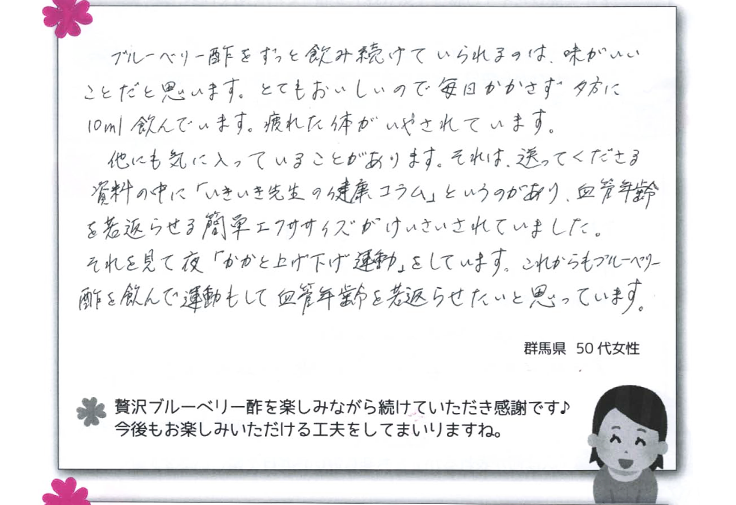 ブルーベリー酢をずっと飲み続けていられるのは、味がいい
ことだと思います。とてもおいしいので毎日かかさず夕方に
10ml飲んでいます。疲れた体がいやされています。
他にも気に入っていることがあります。それは、送ってくださる
資料の中に「いきいき先生の健康コラム」というのがあり、血管年齢
を若返らせる簡単エクササイズがけいさいされていました。
それを見て夜「かかと上げ下げ運動」をしています。これからもブルーベリー
酢を飲んで運動もして血管年齢を若返らせたいと思っています。
群馬県 50代女性
贅沢ブルーベリー酢を楽しみながら続けていただき感謝です♪
今後もお楽しみいただける工夫をしてまいりますね。